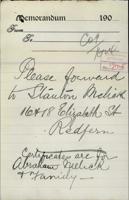 Memorandum 190
From
To
Please forward
to Stanton Melick
16 & 18 Elizabeth St
Redfern
Certificates are for
Abraham Melick
& Family